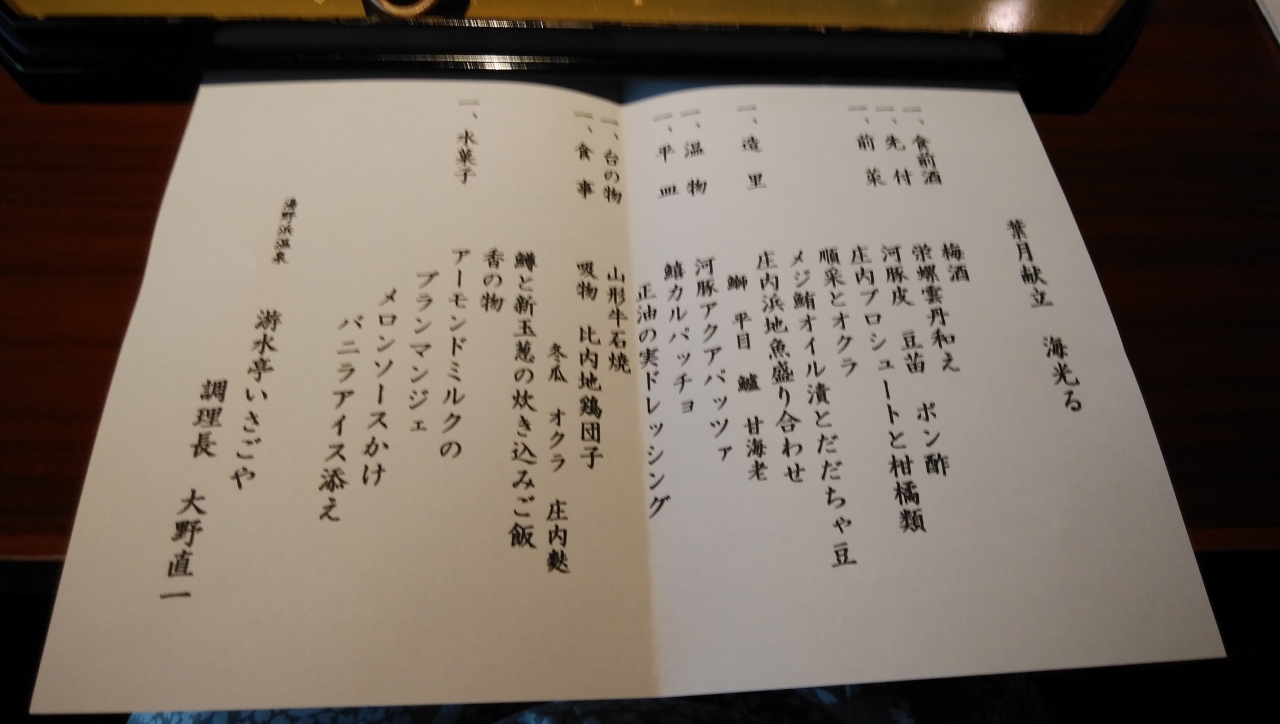 葉月献立 海光る
一、食前酒 梅酒
一、先付 栄螺雲丹和え
河豚皮 豆苗 ポン酢
一、前菜 庄内プロシュートと柑橘類
順采とオクラ
メジ鮪オイル漬とだだちゃ豆
一、造里 庄内浜地魚盛り合わせ
鰤 平目 鱸 甘海老
一、温物 河豚アクアパッツァ
一、平皿 鰭カルパッチョ
正油の実ドレッシング
一、台の物 山形牛石焼
一、食事 吸物 比内地鶏団子
冬瓜 オクラ 庄内麩
鱒と新玉葱の炊き込みご飯
香の物
一、水菓子 アーモンドミルクの
ブランマンジェ
メロンソースかけ
バニラアイス添え
湯野浜温泉
游水亭いさごや
調理長 大野直一